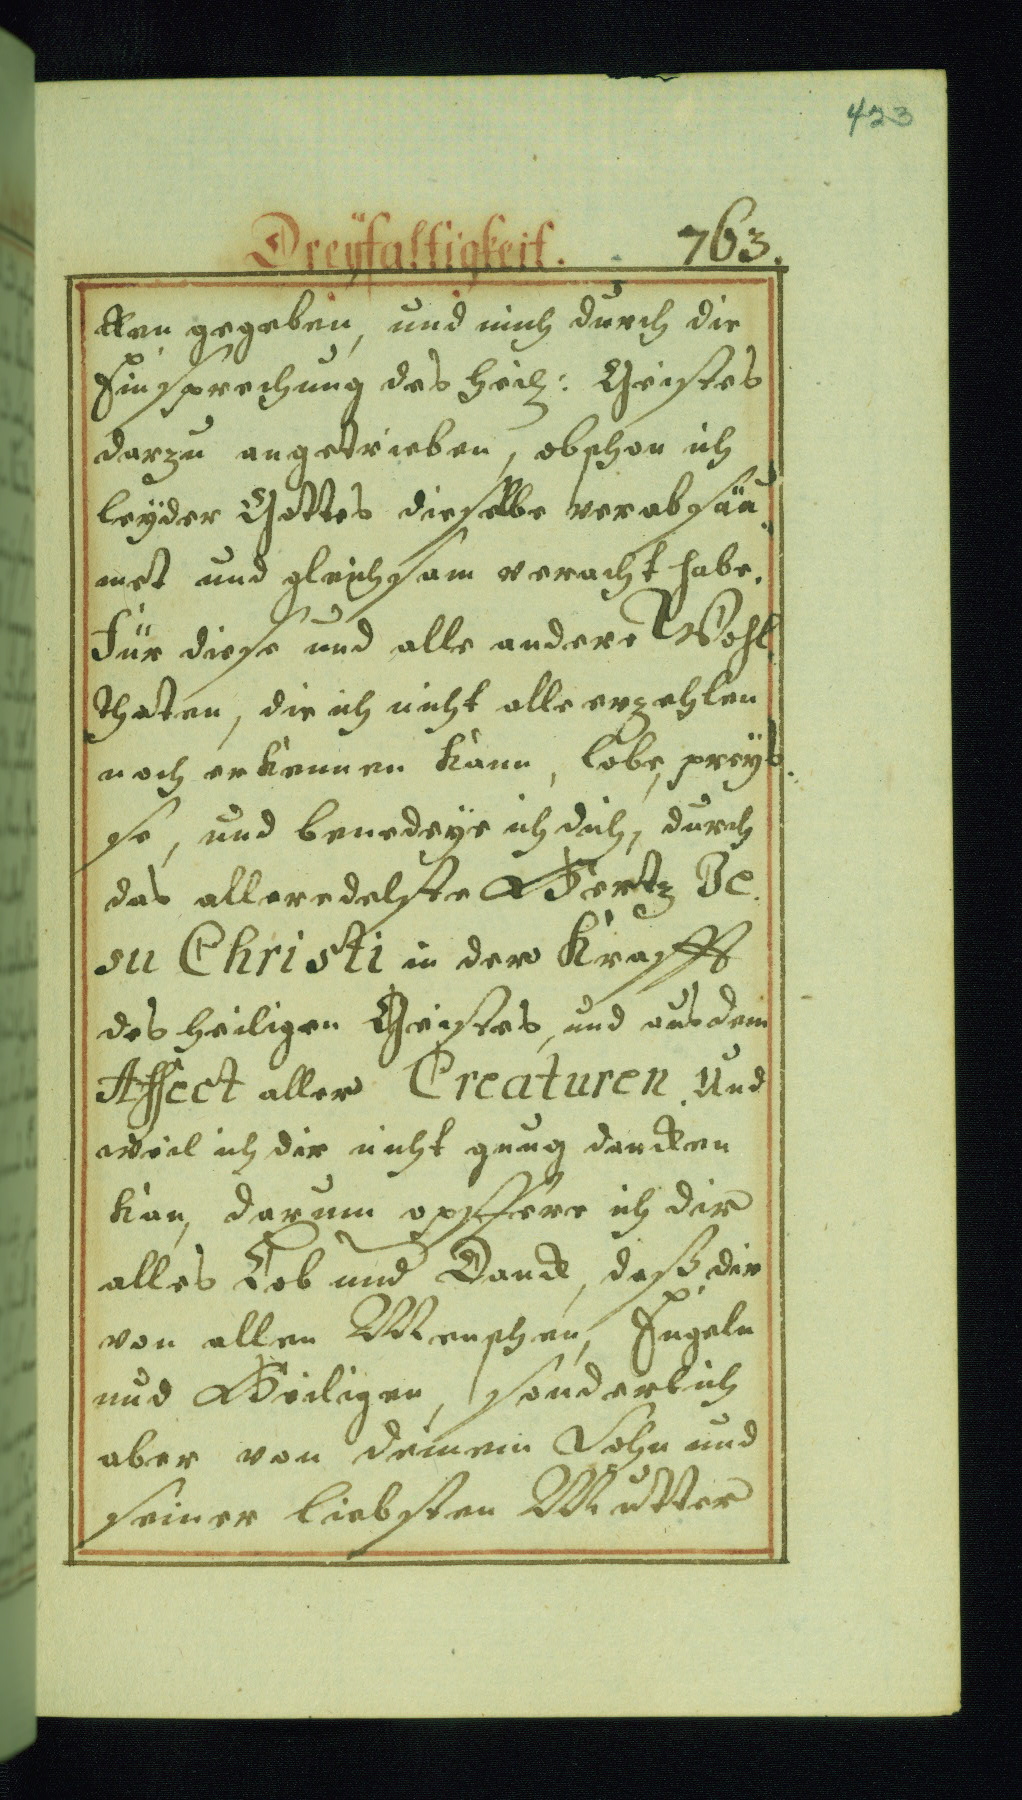 423
Dreÿfaltigkeit. 763.
cken gegeben, und mich durch die
Einsprechung des heil: Geistes
darzu angetrieben, obschon ich
leyder Gottes dieselbe verabsäu
met und gleichsam veracht habe.
Für diese und alle andere Wohl
thaten, die ich nicht alle erzehlen
noch erkennen kann, lobe, preÿ
se, und benedeÿe ich dich, durch
das alleredelste Hertz Je
su Christi in der Krafft
des heiligen Geistes, und aus dem
Affect aller Creaturen. Und
weil ich dir nicht gnug dancken
kan, darum opffere ich dir
alles Lob und Danck, daß dir
von allen Menschen, Engeln
und Heiligen, sonderlich
aber von deinem Sohn und
seiner liebsten Mutter